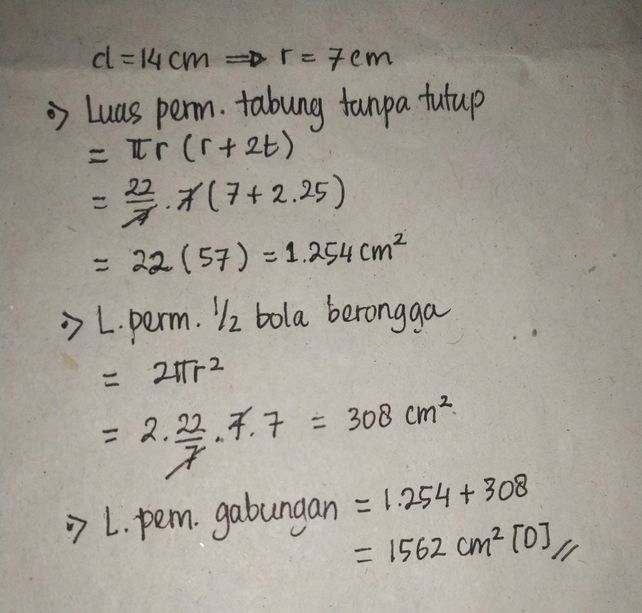 d = 14 cm ⇒ r = 7 cm
•) Luas perm. tabung tanpa tutup
= πr (r + 2t)
= 22/7 . 7 (7 + 2.25)
= 22 (57) = 1.254 cm²
•) L. perm. ½ bola berongga
= 2πr²
= 2. 22/7 . 7. 7 = 308 cm²
•) L. pem. gabungan = 1.254 + 308
= 1562 cm² [D] //